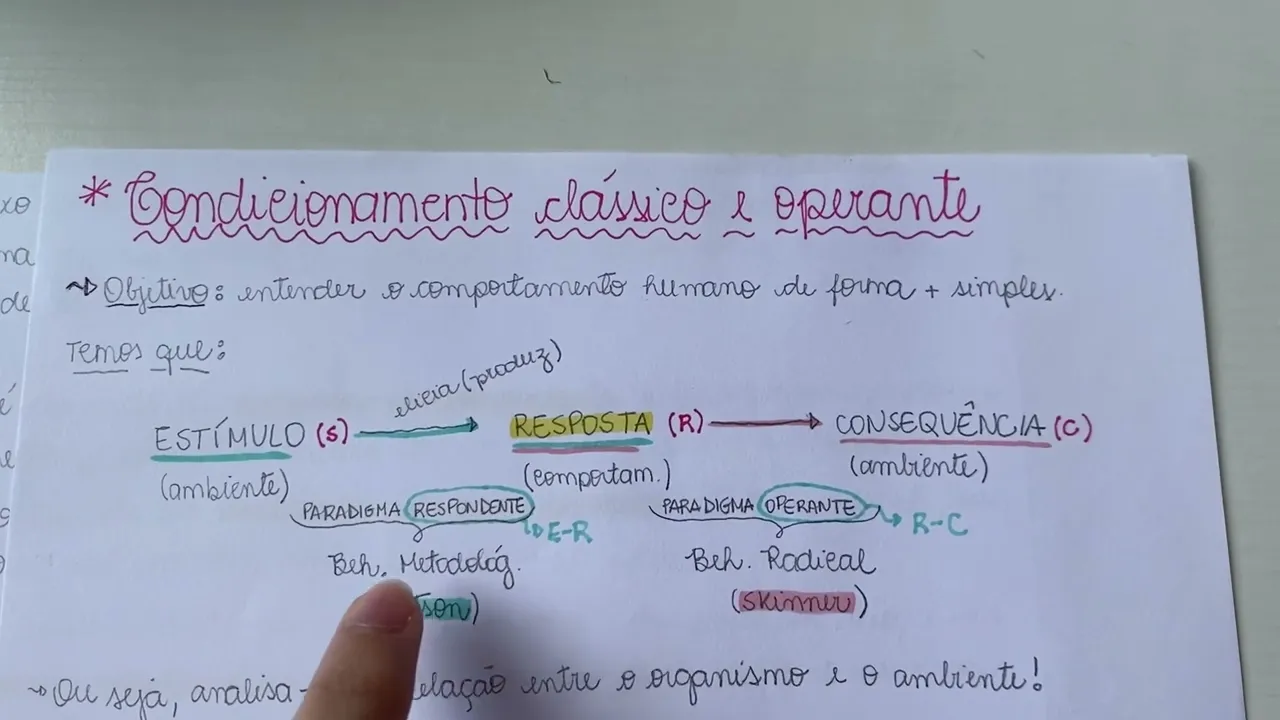 * Condicionamento clássico e operante
~> Objetivo: entender o comportamento humano de forma + simples.
Temos que:
elicia (produz)
ESTÍMULO (S) → RESPOSTA (R) → CONSEQUÊNCIA (C)
(ambiente) (comportam.) (ambiente)
PARADIGMA RESPONDENTE → E-R PARADIGMA OPERANTE → R-C
Beh. Metodológ. Beh. Radical
(Skinner)
~> Ou seja, analisa- entre o organismo e o ambiente!
xo
ma
de
é